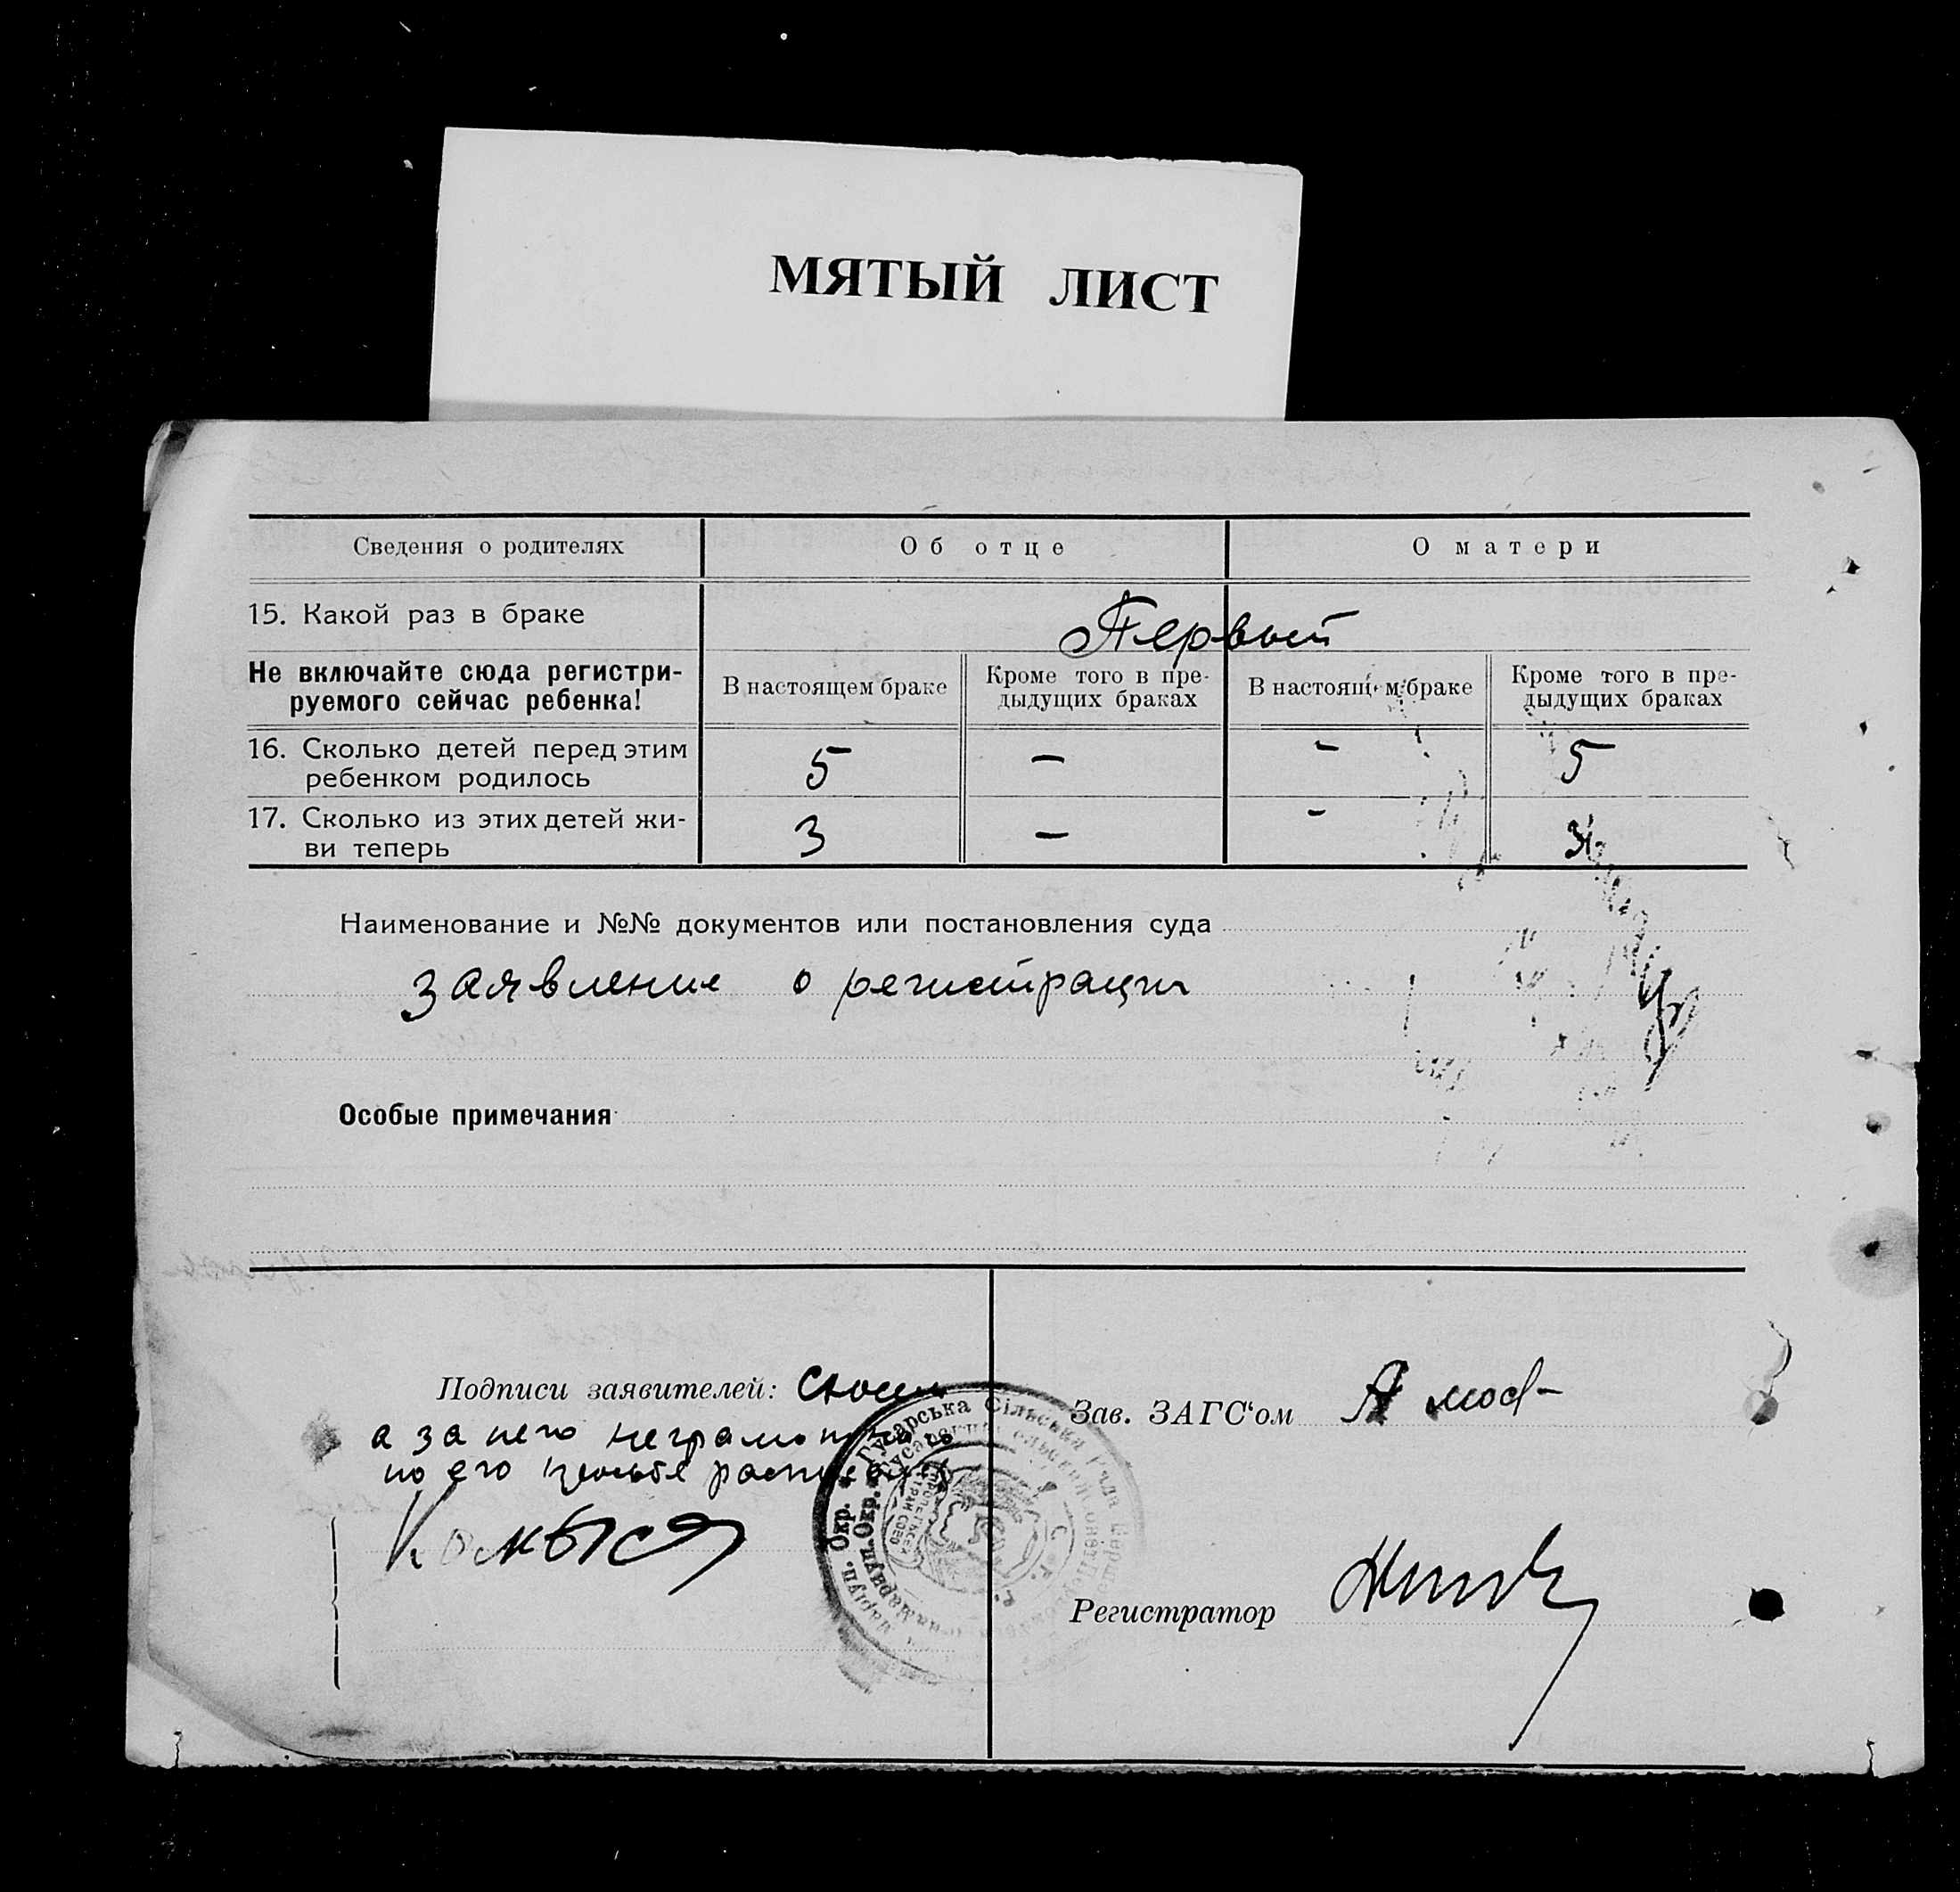 МЯТЫЙ ЛИСТ
Сведения о родителях
Об отце
О матери
15. Какой раз в браке
Первый
Не включайте сюда регистри-
руемого сейчас ребенка!
В настоящем браке
Кроме того в пре-
дыдущих браках
В настоящем браке
Кроме того в пре-
дыдущих браках
16. Сколько детей перед этим
ребенком родилось
5
—
-
5
17. Сколько из этих детей жи-
ви теперь
3
—
-
3
Наименование и №№ документов или постановления суда
заявление о регистрации
Особые примечания
Подписи заявителей:
а за него неграмотного
по его просьбе расписался
Зав. ЗАГС‘ом
Регистратор
Гусарська Сільська Рада
Окр.
Маріуп. Окр.